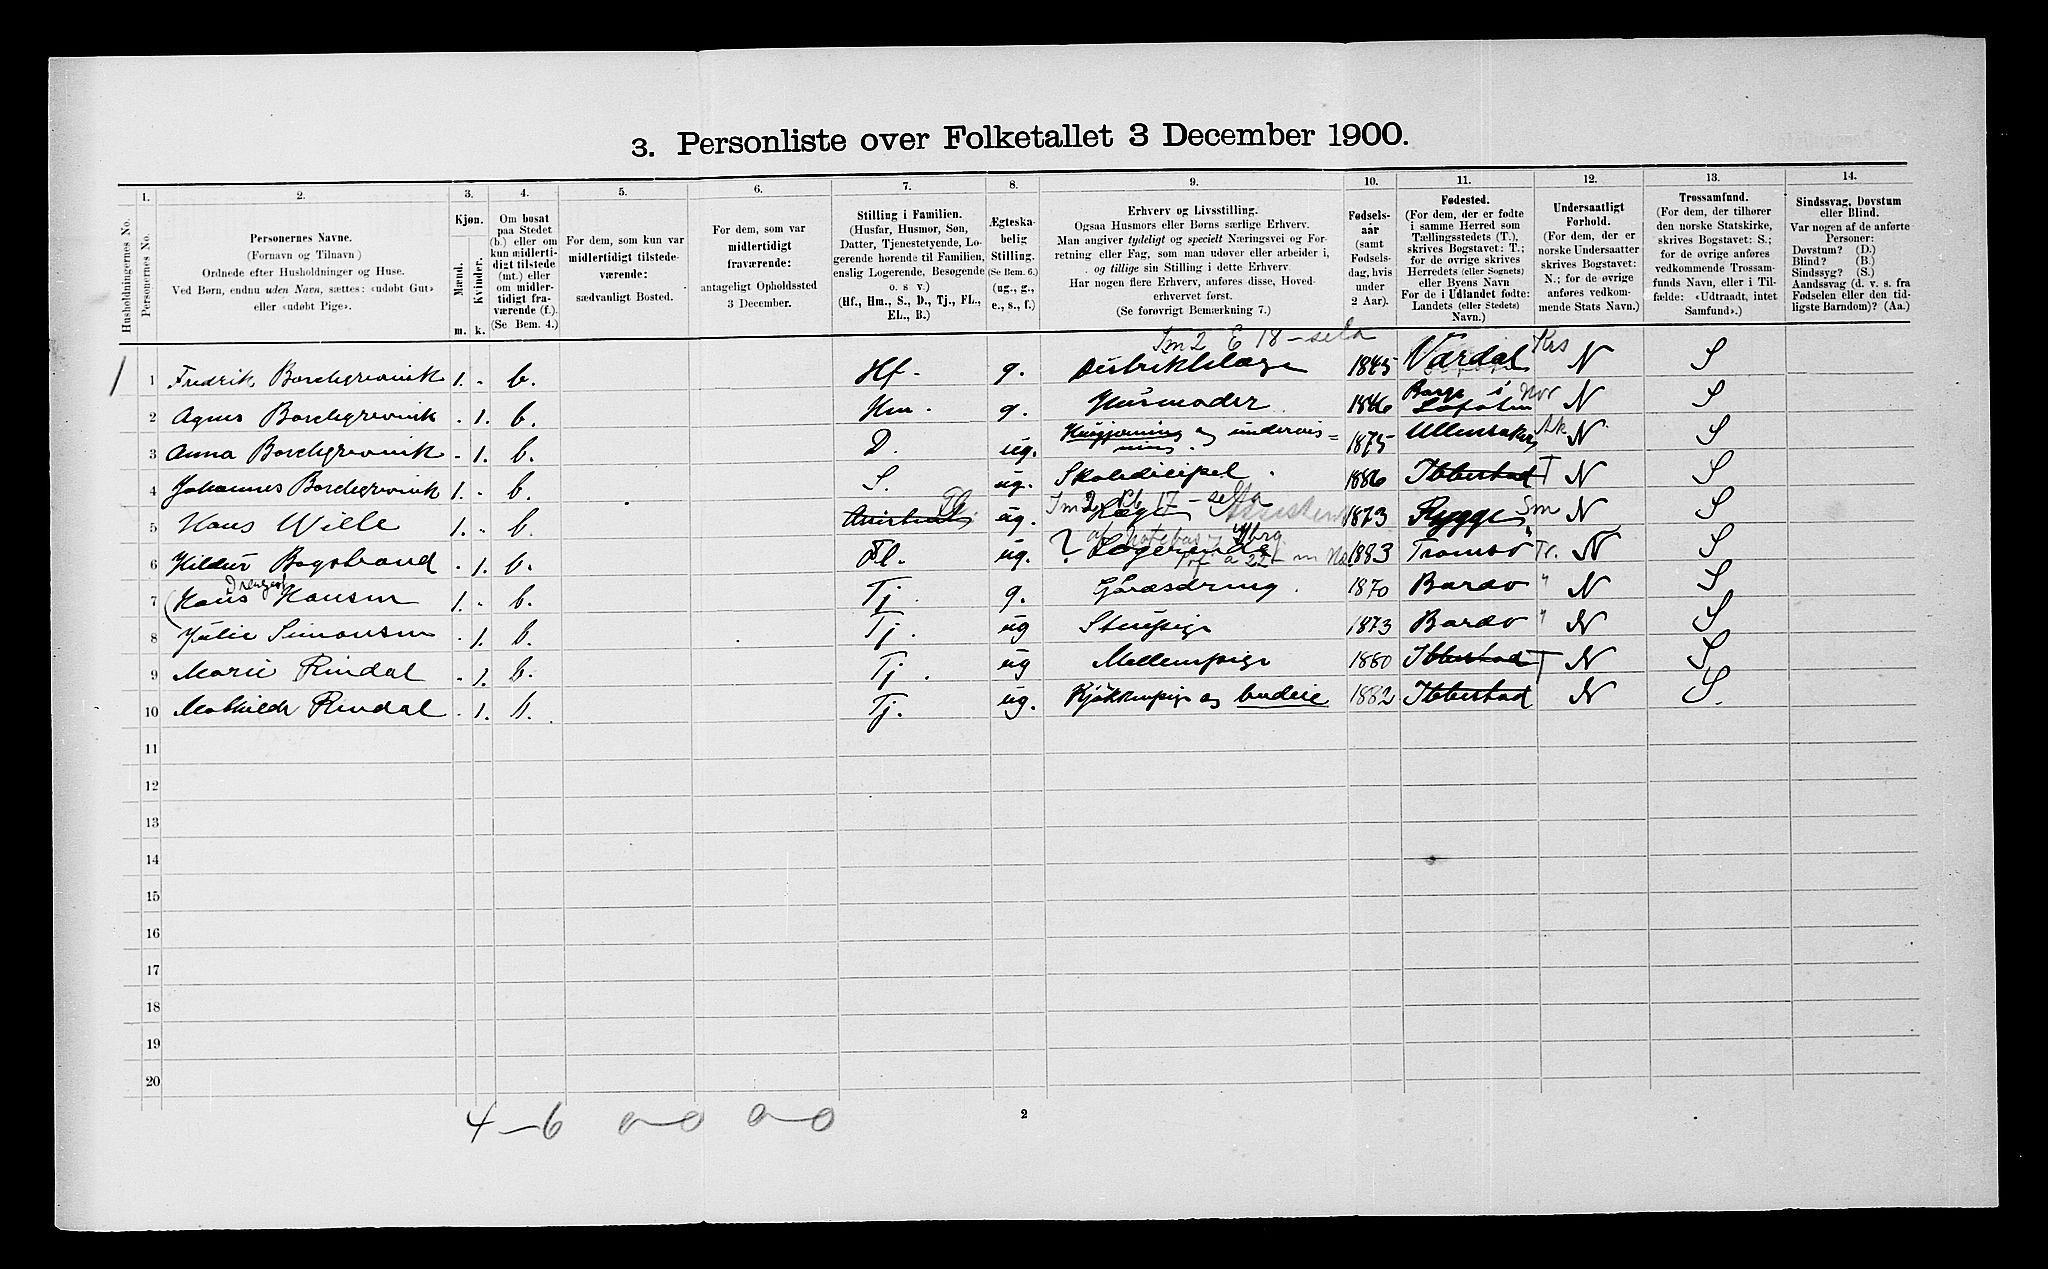 3. Personliste over Folketallet 3 December 1900.
Husholdningernes No.
1.
Personernes No.
2.
Personernes Navne.
(Fornavn og Tilnavn)
Ordnede efter Husholdninger og Huse.
Ved Børn, endnu uden Navn, sættes: «udøbt Gut»
eller «udøbt Pige».
3.
Kjøn.
Mænd.
Kvinder.
m. k.
4.
Om bosat
paa Stedet
(b.) eller om
kun midlerti-
digt tilstede
(mt.) eller
om midler-
tidigt fra-
værende (f.).
(Se Bem. 4.)
5.
For dem, som kun var
midlertidigt tilstede-
værende:
sædvanligt Bosted.
6.
For dem, som var
midlertidigt
fraværende:
antageligt Opholdssted
3 December.
7.
Stilling i Familien.
(Husfar, Husmor, Søn,
Datter, Tjenestetyende, Lo-
gerende hørende til Familien,
enslig Logerende, Besøgende
o. s v.)
(Hf., Hm., S., D., Tj., FL.,
EL., B.)
8.
Ægteska-
belig
Stilling.
(Se Bem. 6.)
(ug., g.,
e., s., f.)
9.
Erhverv og Livsstilling.
Ogsaa Husmors eller Børns særlige Erhverv.
Man angiver tydeligt og specielt Næringsvei og For-
retning eller Fag, som man udøver eller arbeider i,
og tillige sin Stilling i dette Erhverv.
Har nogen flere Erhverv, anføres disse, Hoved-
erhvervet først.
(Se forøvrigt Bemærkning 7.)
10.
Fødsels-
aar
(samt
Fødsels-
dag, hvis
under
2 Aar).
11.
Fødested.
(For dem, der er fødte
i samme Herred som
Tællingsstedets (T.),
skrives Bogstavet: T.;
for de øvrige skrives
Herredets (eller Sognets)
eller Byens Navn
For de i Udlandet fødte:
Landets (eller Stedets)
Navn.)
12.
Undersaatligt
Forhold.
(For dem, der er
norske Undersaatter
skrives Bogstavet:
N.; for de øvrige
anføres vedkom-
mende Stats Navn.)
13.
Trossamfund.
(For dem, der tilhører
den norske Statskirke,
skrives Bogstavet: S.;
for de øvrige anføres
vedkommende Trossam-
funds Navn, eller i Til-
fælde: «Udtraadt, intet
Samfund».)
14.
Sindssvag, Døvstum
eller Blind.
Var nogen af de anførte
Personer:
Døvstum? (D.)
Blind? (B.)
Sindssyg? (S.)
Aandssvag (d. v. s. fra
Fødselen eller den tid-
ligste Barndom)? (Aa.)
Sm2 E 18 - selv
1 1 Fredrik Borchgrevink 1. - b. Hf. g. Distriktslæge 1845 Vardal Krs N S
2 Agnes Borchgrevink - 1. b. Hm. g. Husmoder 1846 Borge i Lofoten Nor N S
3 Anna Borchgrevink - 1. b. D. ug. Husgjerning og undervis=ning. 1875 Ullensaker Ak N S
4 Johannes Borchgrevink 1. - b. S. ug. Skoledicipel 1886 Ibbestad T N S
5 Hans Wille 1. - b. Fl. ug. Læge Assistent 1873 Rygge Sm N S
6 Hildur Bogstrand - 1. b. Fl. ug. ? Logerende 1883 Tromsø Tr. N S
7 Hans Hansen 1. - b. Tj. g. Gårdsdreng 1870 Bardo " N S
8 Julie Simonsen - 1. b. Tj. ug Stuepige 1873 Bardo " N S
9 Marie Rindal - 1. b. Tj. ug Mellempige 1880 Ibbestad T N S
10 Mathilde Rindal - 1. b. Tj. ug. Kjøkkenpige og budeie 1882 Ibbestad N S.
11
12
13
14
15
16
17
18
19
20
4-6 0-0 0-0
2